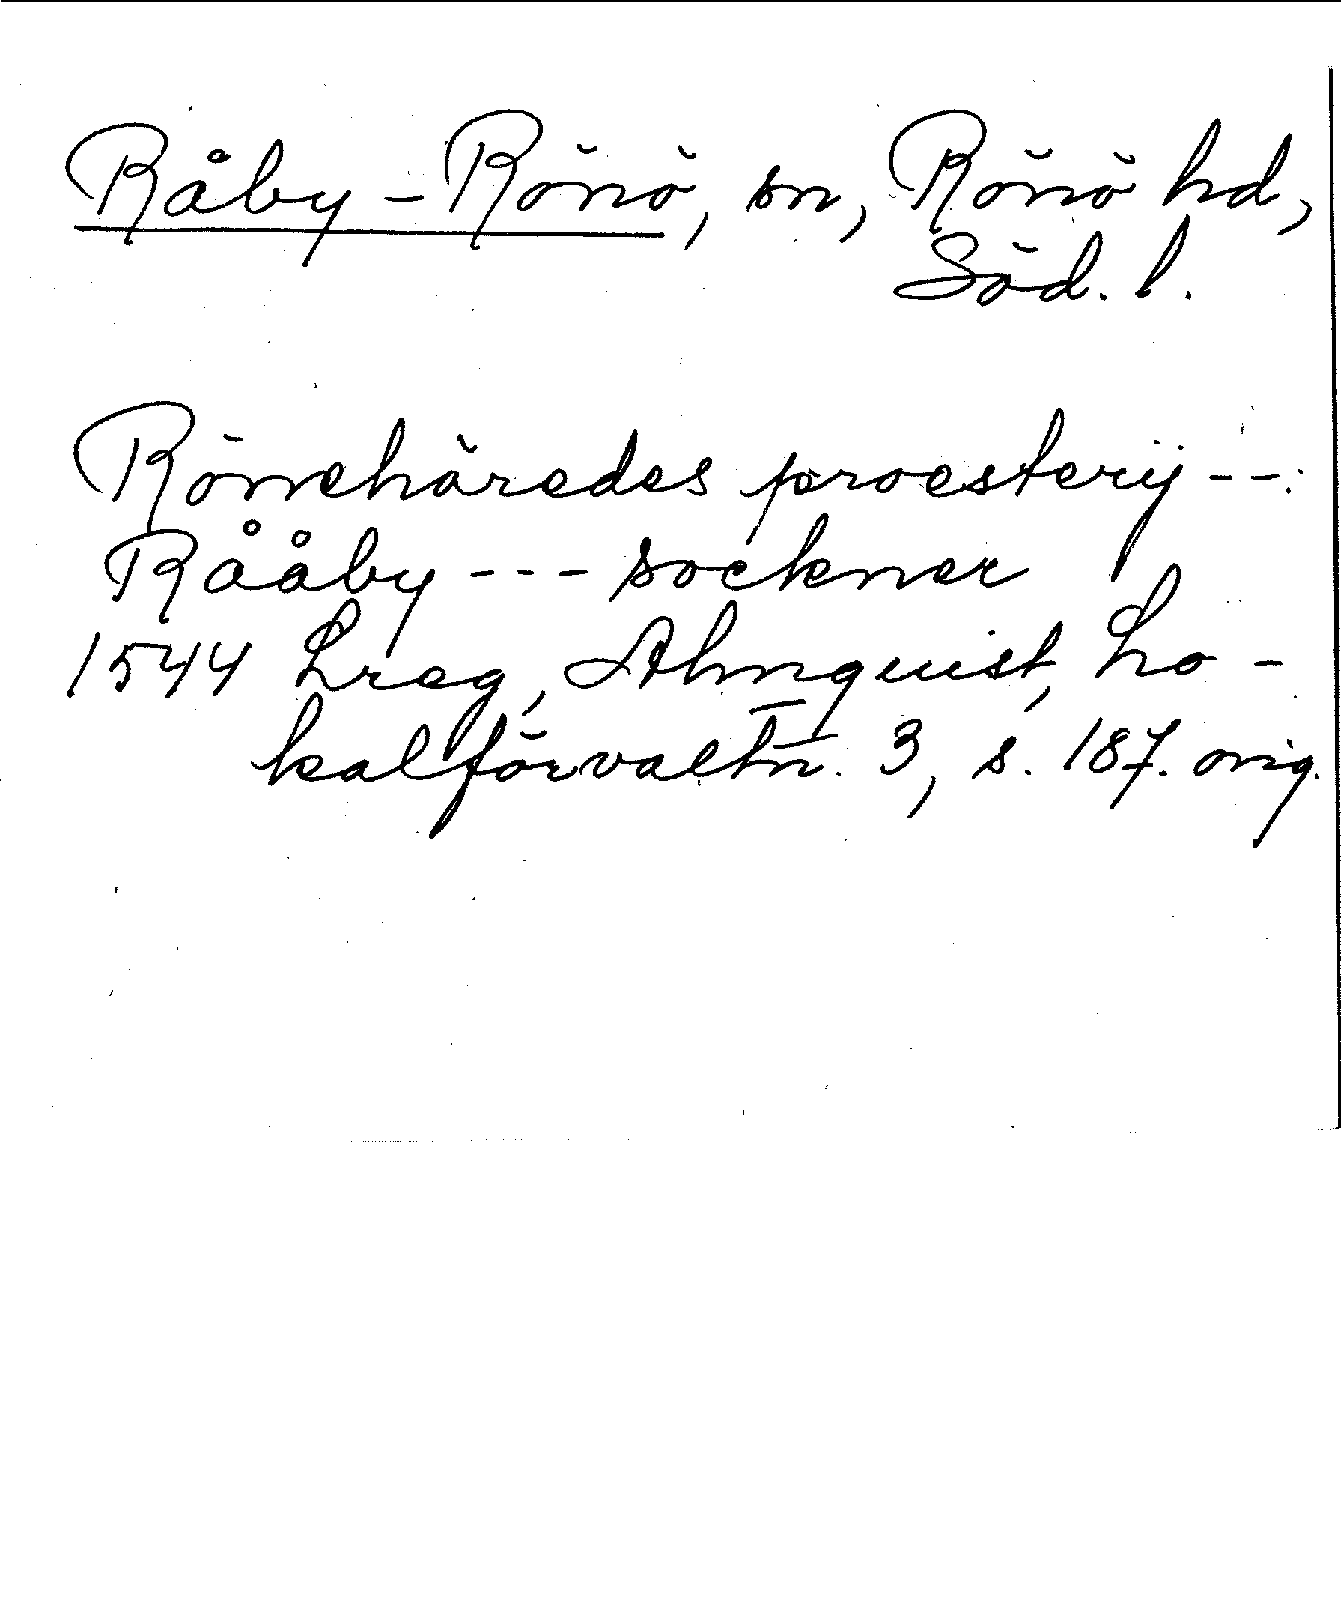 Råby-Rönö, sn, Rönö hd,
Söd. l.
Rönnehäredes proesterij --:
Rååby --- sockner
1544 Lreg, Almquist, Lo-
kalförvaltn. 3, s. 187. orig.